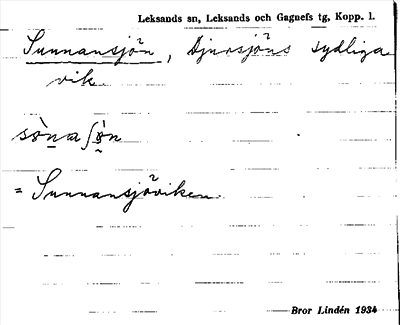 Leksands sn, Leksands och Gagnefs tg, Kopp. l.
Sunnansjön, Djursjöns sydliga
vik.
= Sunnansjöviken.
Bror Lindén 1934